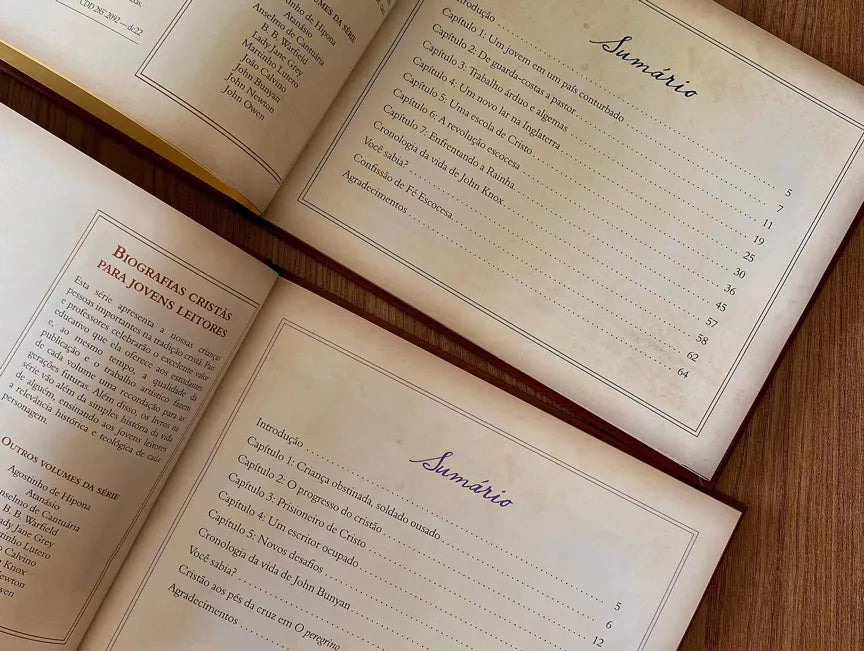 CDD 285.2092 — dc22
VOLUMES DA SÉRIE
de Hipona
Atanásio
Anselmo de Cantuária
B. B. Warfield
Lady Jane Grey
Martinho Lutero
João Calvino
John Bunyan
John Newton
John Owen
Sumário
trodução 5
Capítulo 1: Um jovem em um país conturbado 7
Capítulo 2: De guarda-costas a pastor 11
Capítulo 3: Trabalho árduo e algemas 19
Capítulo 4: Um novo lar na Inglaterra 25
Capítulo 5: Uma escola de Cristo 30
Capítulo 6: A revolução escocesa 36
Capítulo 7: Enfrentando a Rainha 45
Cronologia da vida de John Knox 57
Você sabia? 58
Confissão de Fé Escocesa 62
Agradecimentos 64
BIOGRAFIAS CRISTÃS
PARA JOVENS LEITORES
Esta série apresenta a nossas crianças
pessoas importantes na tradição cristã. Pais
e professores celebrarão o excelente valor
educativo que ela oferece aos estudantes
e, ao mesmo tempo, a qualidade da
publicação e o trabalho artístico fazem
de cada volume uma recordação para as
gerações futuras. Além disso, os livros na
série vão além da simples história da vida
de alguém, ensinando aos jovens leitores
a relevância histórica e teológica de cada
personagem.
OUTROS VOLUMES DA SÉRIE
Agostinho de Hipona
Atanásio
nselmo de Cantuária
B. B. Warfield
ady Jane Grey
rtinho Lutero
o Calvino
Knox
ewton
wen
Sumário
Introdução 5
Capítulo 1: Criança obstinada, soldado ousado 6
Capítulo 2: O progresso do cristão 12
Capítulo 3: Prisioneiro de Cristo
Capítulo 4: Um escritor ocupado
Capítulo 5: Novos desafios
Cronologia da vida de John Bunyan
Você sabia?
Cristão aos pés da cruz em O peregrino
Agradecimentos